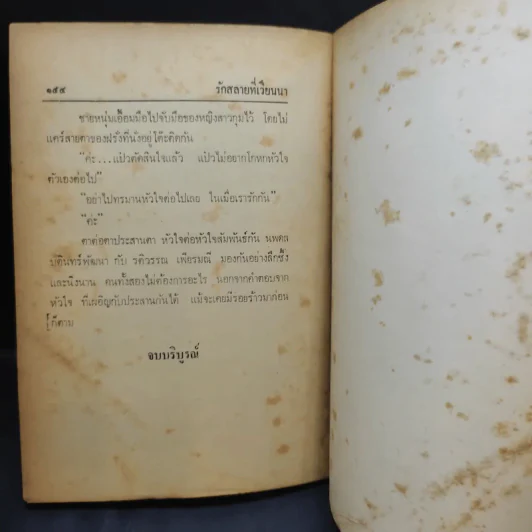 ๑๕๔ รักสลายที่เวียนนา
ชายหนุ่มเอื้อมมือไปจับมือของหญิงสาวกุมไว้ โดยไม่
แคร์สายตาของฝรั่งที่นั่งอยู่โต๊ะติดกัน
“ค่ะ...แป๋วตัดสินใจแล้ว แป๋วไม่อยากโกหกหัวใจ
ตัวเองต่อไป”
“อย่าไปทรมานหัวใจต่อไปเลย ในเมื่อเรารักกัน”
“ค่ะ”
ตาต่อตาประสานตา หัวใจต่อหัวใจสัมพันธ์กัน นพดล
บดินทร์พัฒนา กับ รติวรรณ เพียรมณี มองกันอย่างลึกซึ้ง
และนิ่งนาน คนทั้งสองไม่ต้องการอะไร นอกจากคำตอบจาก
หัวใจ ที่เผอิญกับประสานกันได้ แม้จะเคยมีรอยร้าวมาก่อน
ก็ตาม
จบบริบูรณ์